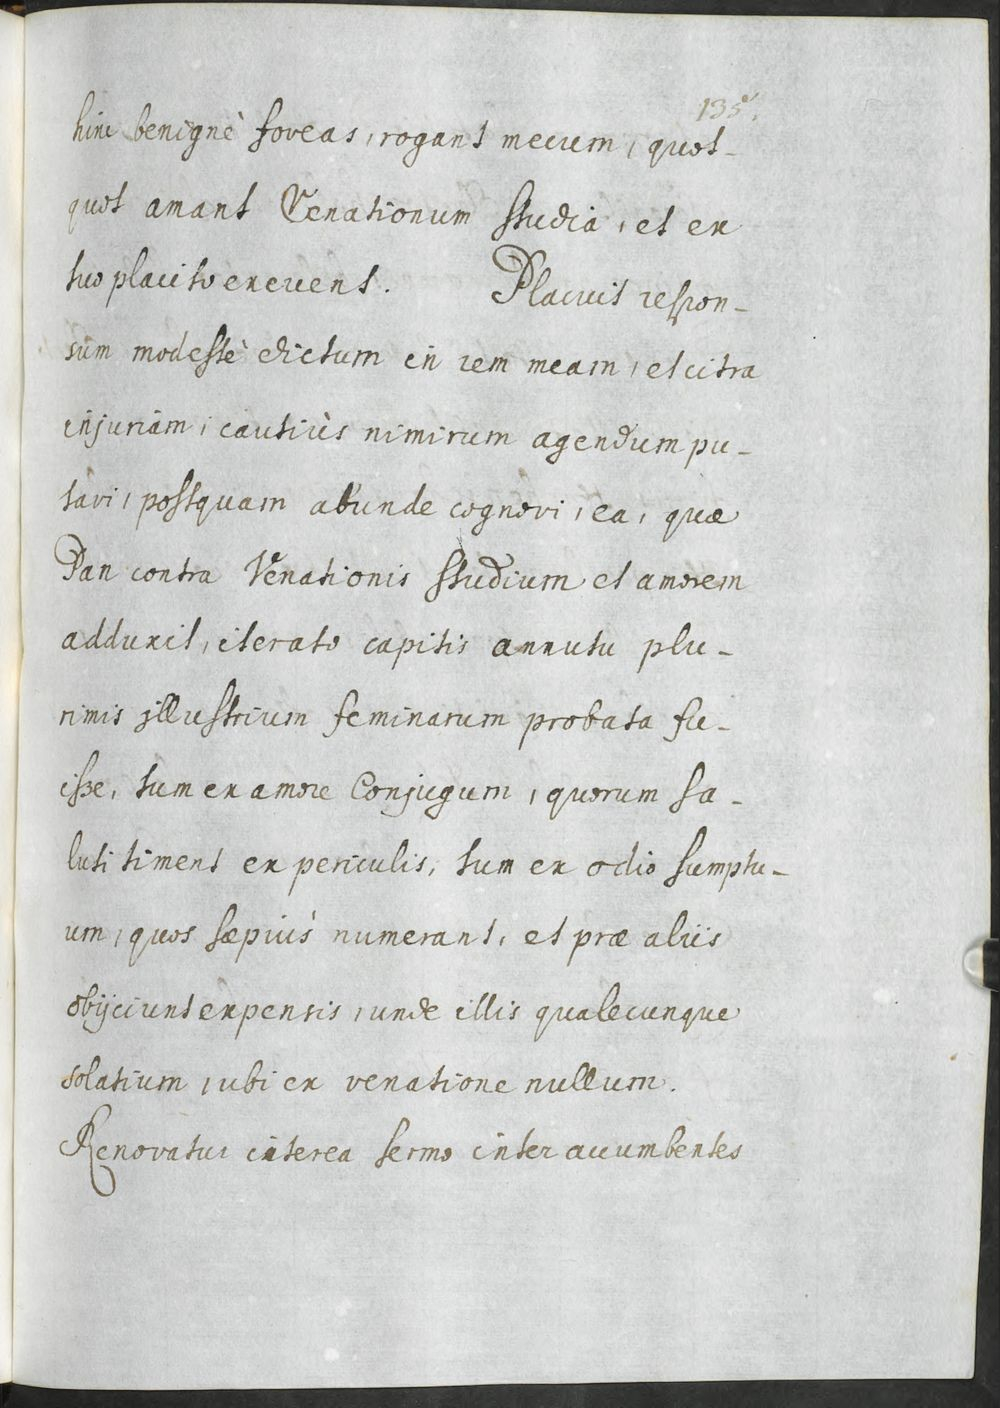 135.
hinc benignè foveas, rogant mecum, quot-
quot amant Venationum studia, et ex
tuo placito exercent. Placuit respon-
sum modestè dictum in rem meam, et citra
injuriam, cautiùs nimirum agendum pu-
tavi, postquam abunde cognovi, ea, quæ
Pan contra Venationis studium et amorem
adduxit, iterato capitis annutu plu-
rimis illustrium feminarum probata fu-
isse, tum ex amore Conjugum, quorum sa-
luti timent ex periculis, tum ex odio sumptu-
um, quos sæpiùs numerant, et præ aliis
obijciunt expensis, unde illis qualecunque
solatium, ubi ex venatione nullum.
Renovatur interea sermo inter accumbentes